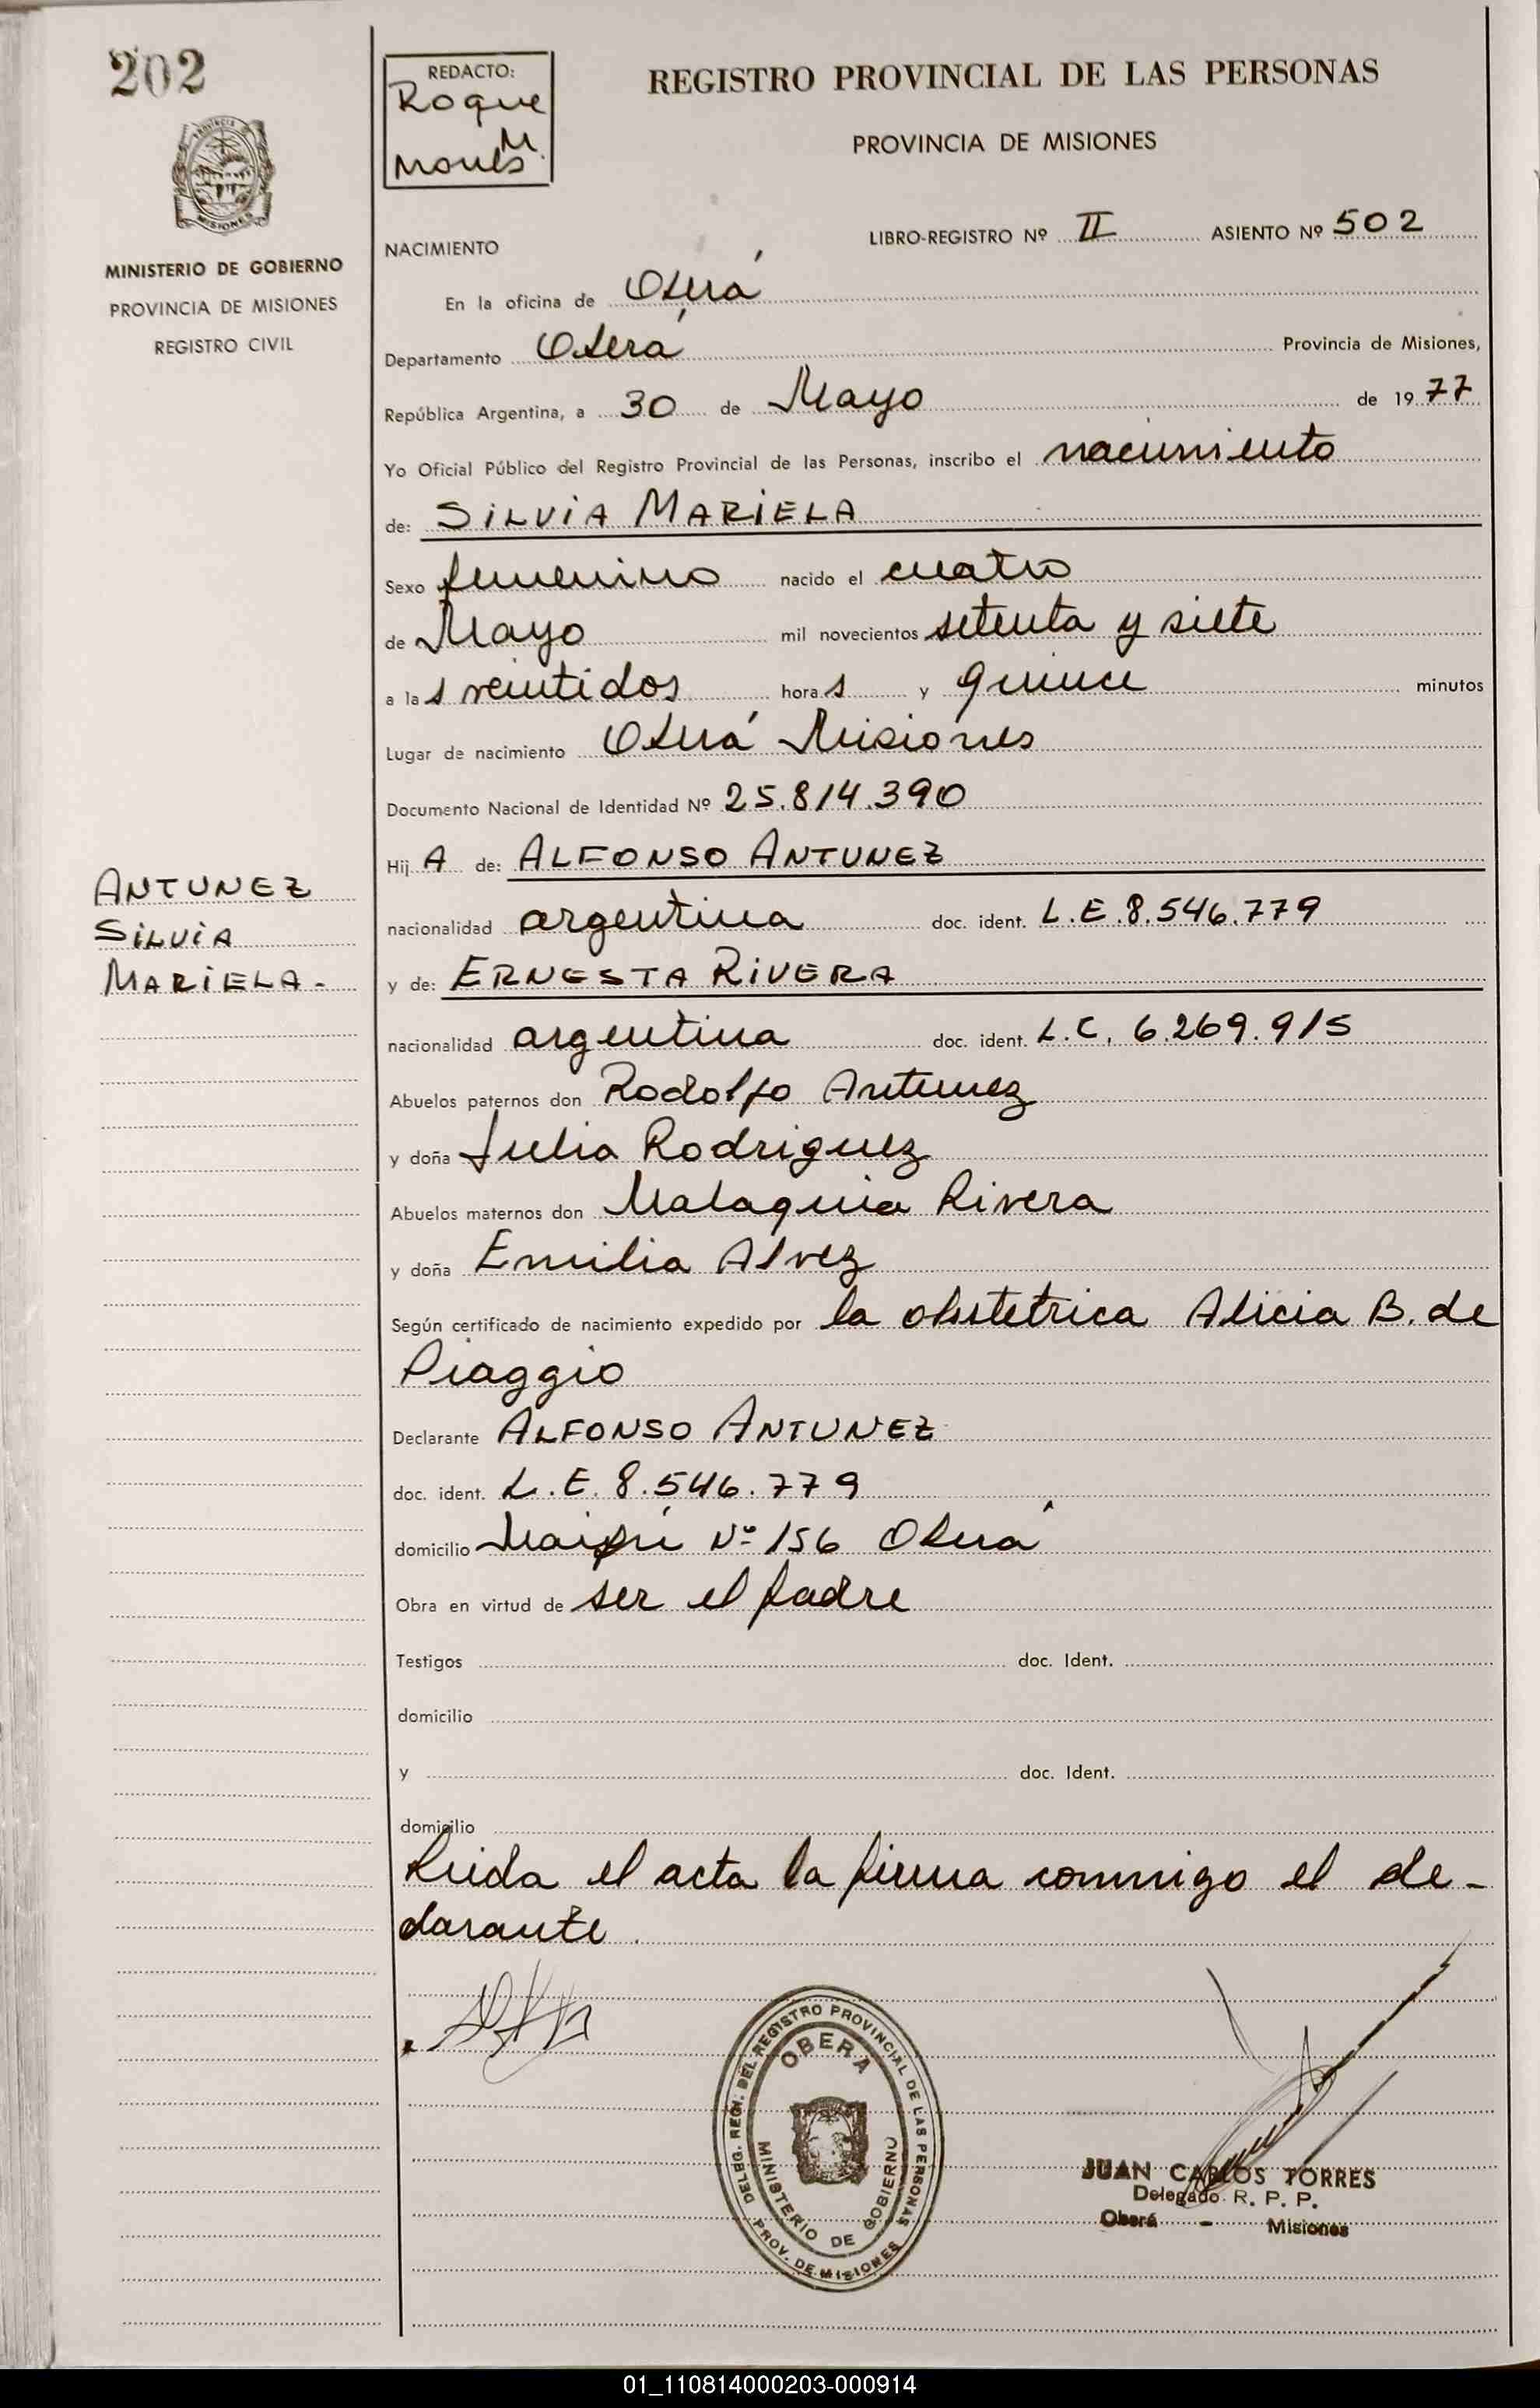 202
REDACTO:
Roque
M.
REGISTRO PROVINCIAL DE LAS PERSONAS
PROVINCIA DE MISIONES
PROVINCIA DE
MISIONES
MINISTERIO DE GOBIERNO
PROVINCIA DE MISIONES
REGISTRO CIVIL
NACIMIENTO
LIBRO-REGISTRO Nº II ASIENTO Nº 502
En la oficina de Oberá
Departamento Oberá Provincia de Misiones,
República Argentina, a 30 de Mayo de 1977
Yo Oficial Público del Registro Provincial de las Personas, inscribo el nacimiento
de: SILVIA MARIELA
Sexo femenino nacido el cuatro
de Mayo mil novecientos setenta y siete
a las veintidos horas y quince minutos
Lugar de nacimiento Oberá Misiones
Documento Nacional de Identidad Nº 25.814.390
Hij A de: ALFONSO ANTUNEZ
ANTUNEZ
SILVIA
MARIELA.-
nacionalidad argentina doc. ident. L.E.8.546.779
y de: ERNESTA RIVERA
nacionalidad argentina doc. ident. L.C. 6.269.915
Abuelos paternos don Rodolfo Antunez
y doña Julia Rodriguez
Abuelos maternos don Malaquia Rivera
y doña Emilia Alvez
Según certificado de nacimiento expedido por la obstetrica Alicia B. de
Piaggio
Declarante ALFONSO ANTUNEZ
doc. ident. L.E. 8.546.779
domicilio Maipú Nº 156 Oberá
Obra en virtud de ser el padre
Testigos doc. Ident.
domicilio
y doc. Ident.
domicilio
Leida el acta la firma conmigo el de-
clarante.
DELEG. REGI. DEL REGISTRO PROVINCIAL DE LAS PERSONAS
OBERA
MINISTERIO DE GOBIERNO
PROV. DE MISIONES
JUAN CARLOS TORRES
Delegado R. P. P.
Oberá - Misiones
01_110814000203-000914